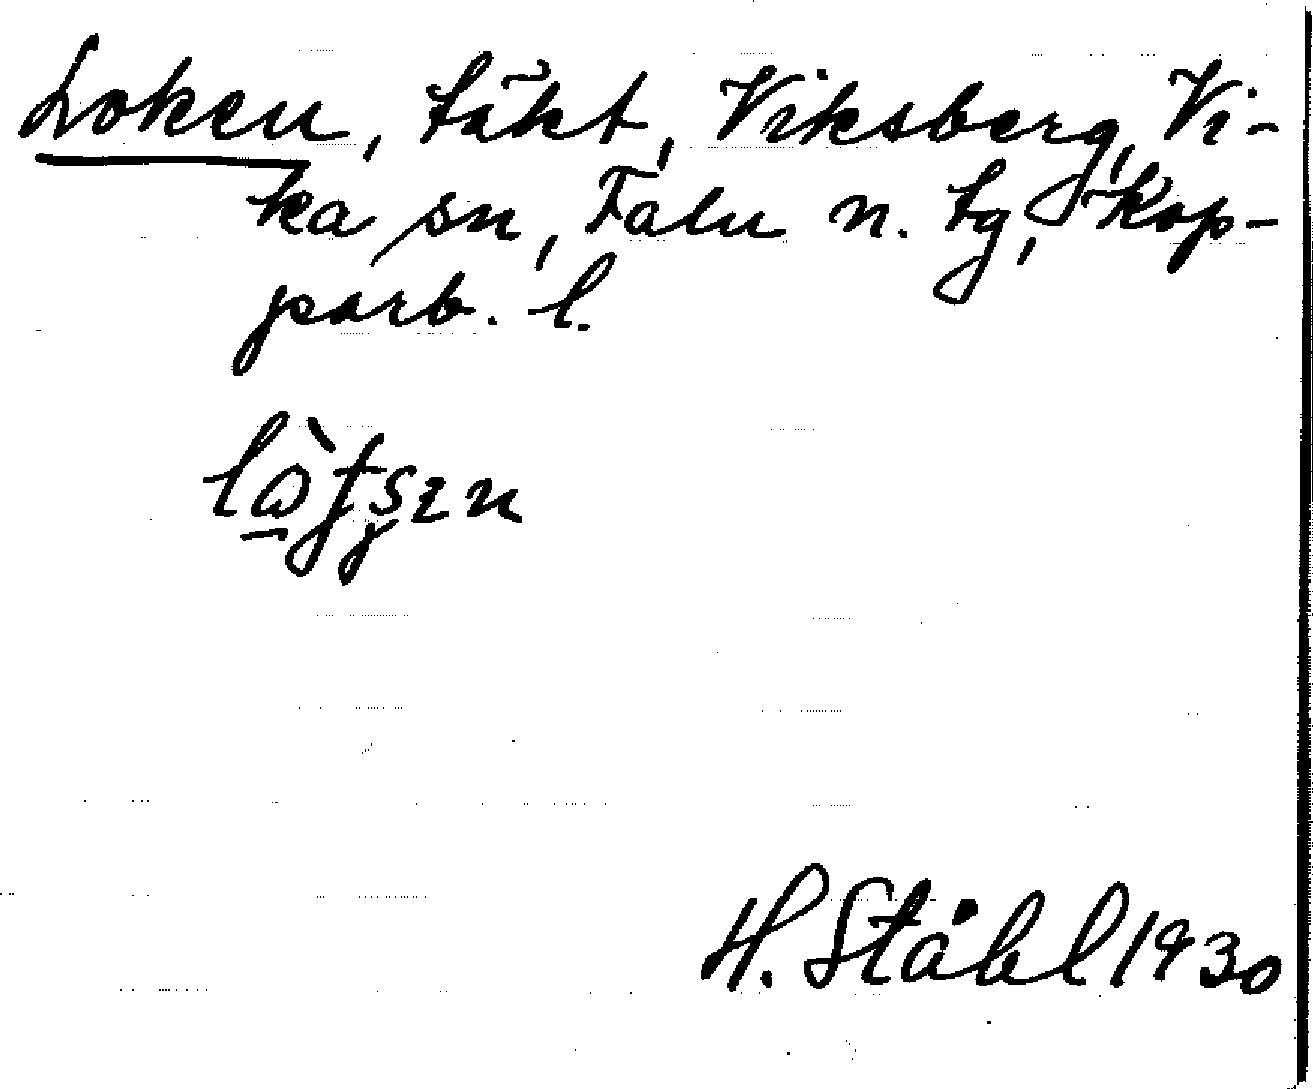 Loken, täkt, Viksberg, Vi-
ka sn, Falu n. tg, Kop-
parb. l.
H. Ståhl 1930